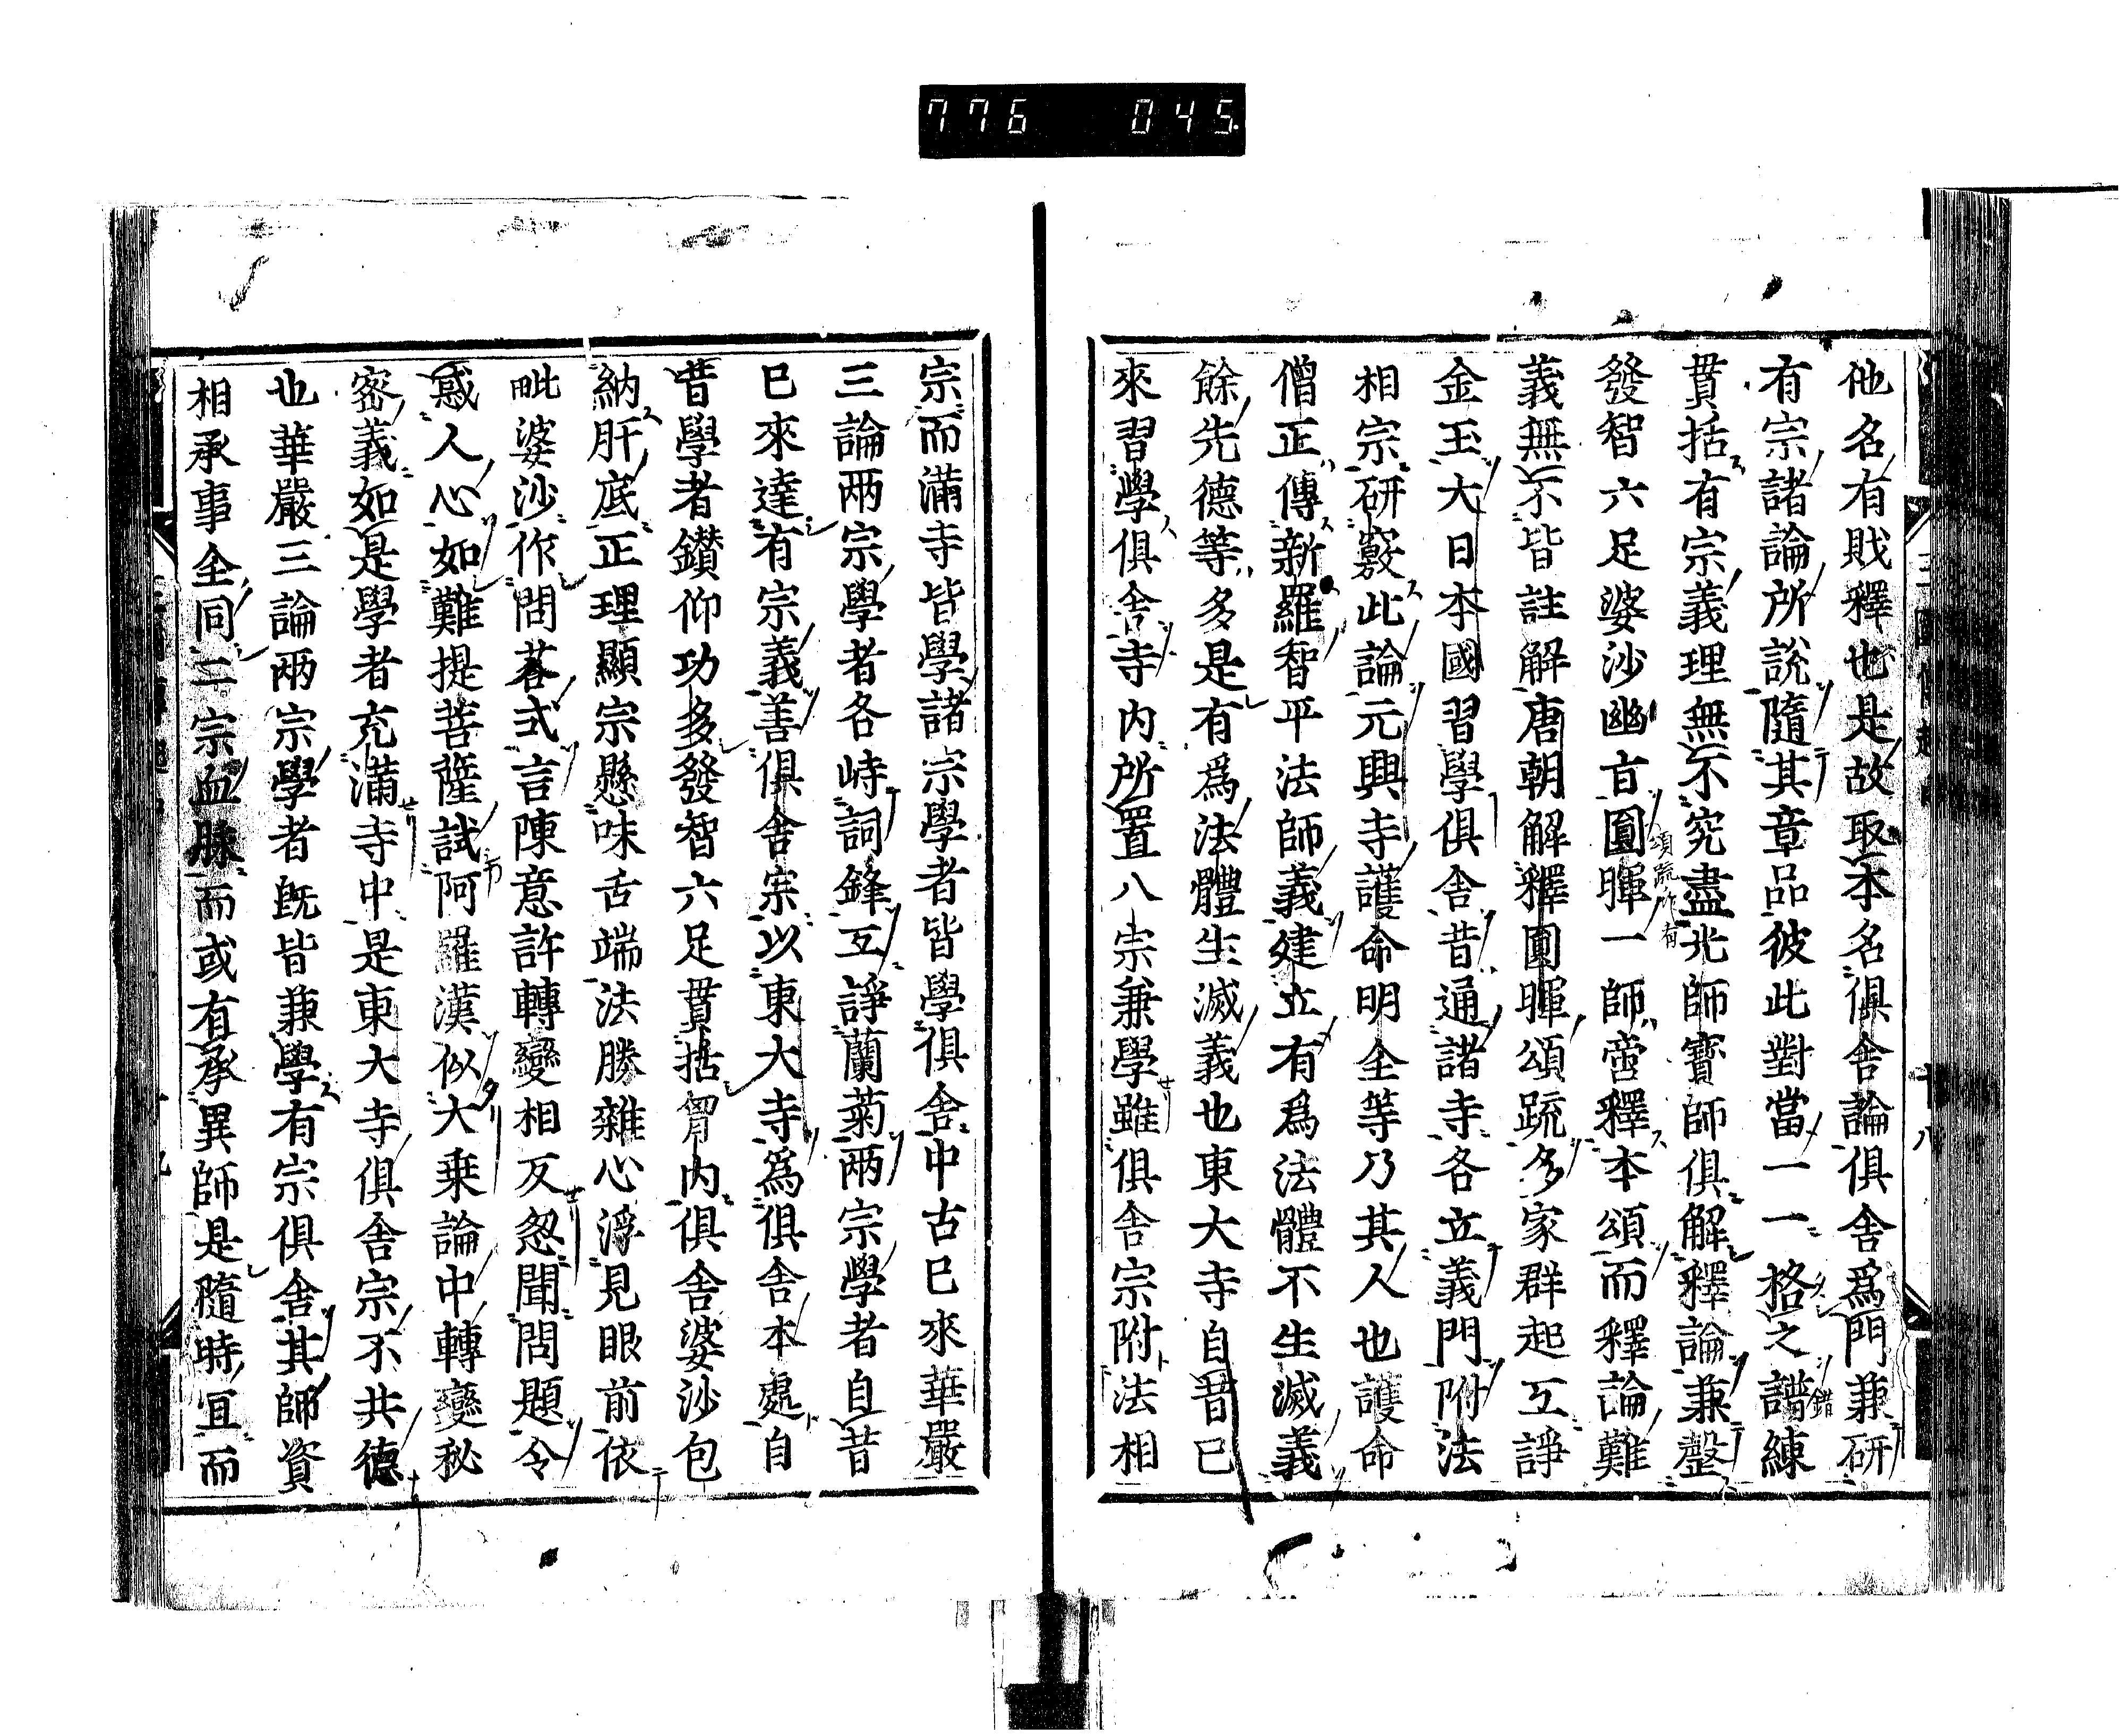 776 045
他名有貶釋也是故取本名俱舍論俱舍爲門兼研
有宗諸論所說隨其章品彼此對當一一格之譜練
錯
貫括有宗義理無不究盡光師寶師俱解釋論兼鏧
發智六足婆沙幽旨圓暉一師啻釋本頌而釋論難
頌疏
義無不皆註解唐朝解釋圓暉頌疏多家群起互諍
金玉大日本國習學俱舍昔通諸寺各立義門附法
相宗研竅此論元興寺護命明全等乃其人也護命
僧正傳新羅智平法師義建立有爲法體不生滅義
餘先德等多是有爲法體生滅義也東大寺自昔已
來習學俱舍寺內所置八宗兼學雖俱舍宗附法相
宗而滿寺皆學諸宗學者皆學俱舍中古已來華嚴
三論兩宗學者各峙詞鋒互諍蘭菊兩宗學者自昔
已來達有宗義善俱舍宗以東大寺爲俱舍本處自
昔學者鑚仰功多發智六足貫括胷內俱舍婆沙包
納肝底正理顯宗懸味舌端法勝雜心浮見眼前依
毗婆沙作問荅式言陳意許轉變相反忽聞問題令
惑人心如難提菩薩試阿羅漢似大乘論中轉變秘
密義如是學者充滿寺中是東大寺俱舍宗不共德
也華嚴三論兩宗學者既皆兼學有宗俱舍其師資
相承事全同二宗血脉而或有承異師是隨時宜而